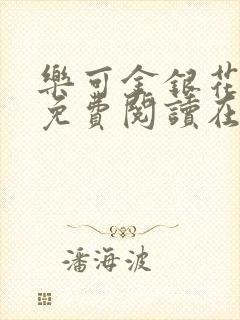 樂可金銀花
免費閱讀在
潘海波